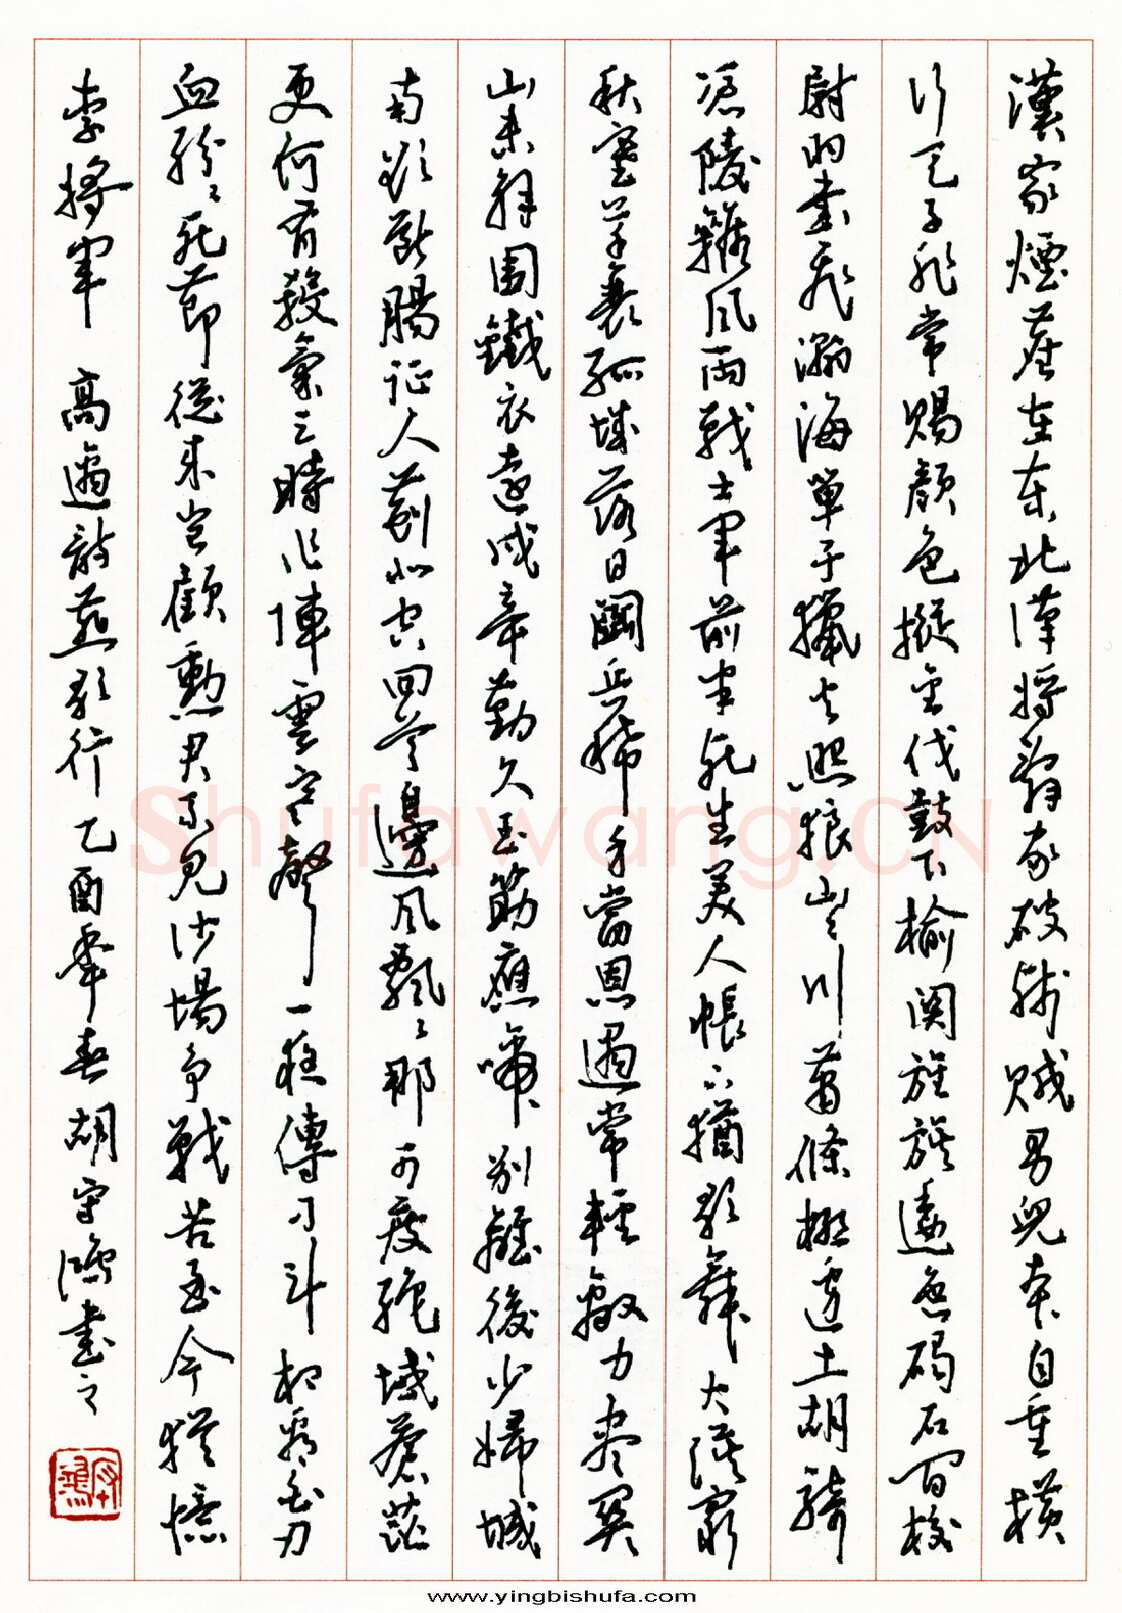 漢家煙塵在東北漢將辭家破殘賊男兒本自重橫
行天子非常賜顏色摐金伐鼓下榆關旌旗逶迤碣石間校
尉羽書飛瀚海單于獵火照狼山〻川蕭條極邊土胡騎
憑陵雜風雨戰士軍前半死生美人帳下猶歌舞大漠窮
秋塞草衰孤城落日鬭兵稀身當恩遇常輕敵力盡關
山未解圍鐵衣遠戍辛勤久玉筯應啼別離後少婦城
南欲斷腸征人薊北空回首邊風飄〻那可度絕域蒼茫
更何有殺氣三時作陣雲寒聲一夜傳刁斗相看白刃
血紛〻死節從來豈顧勳君不見沙場爭戰苦至今猶憶
李將軍 高適詩燕歌行乙酉年春胡守鴻書之
守鴻
Shufawang.CN
www.yingbishufa.com